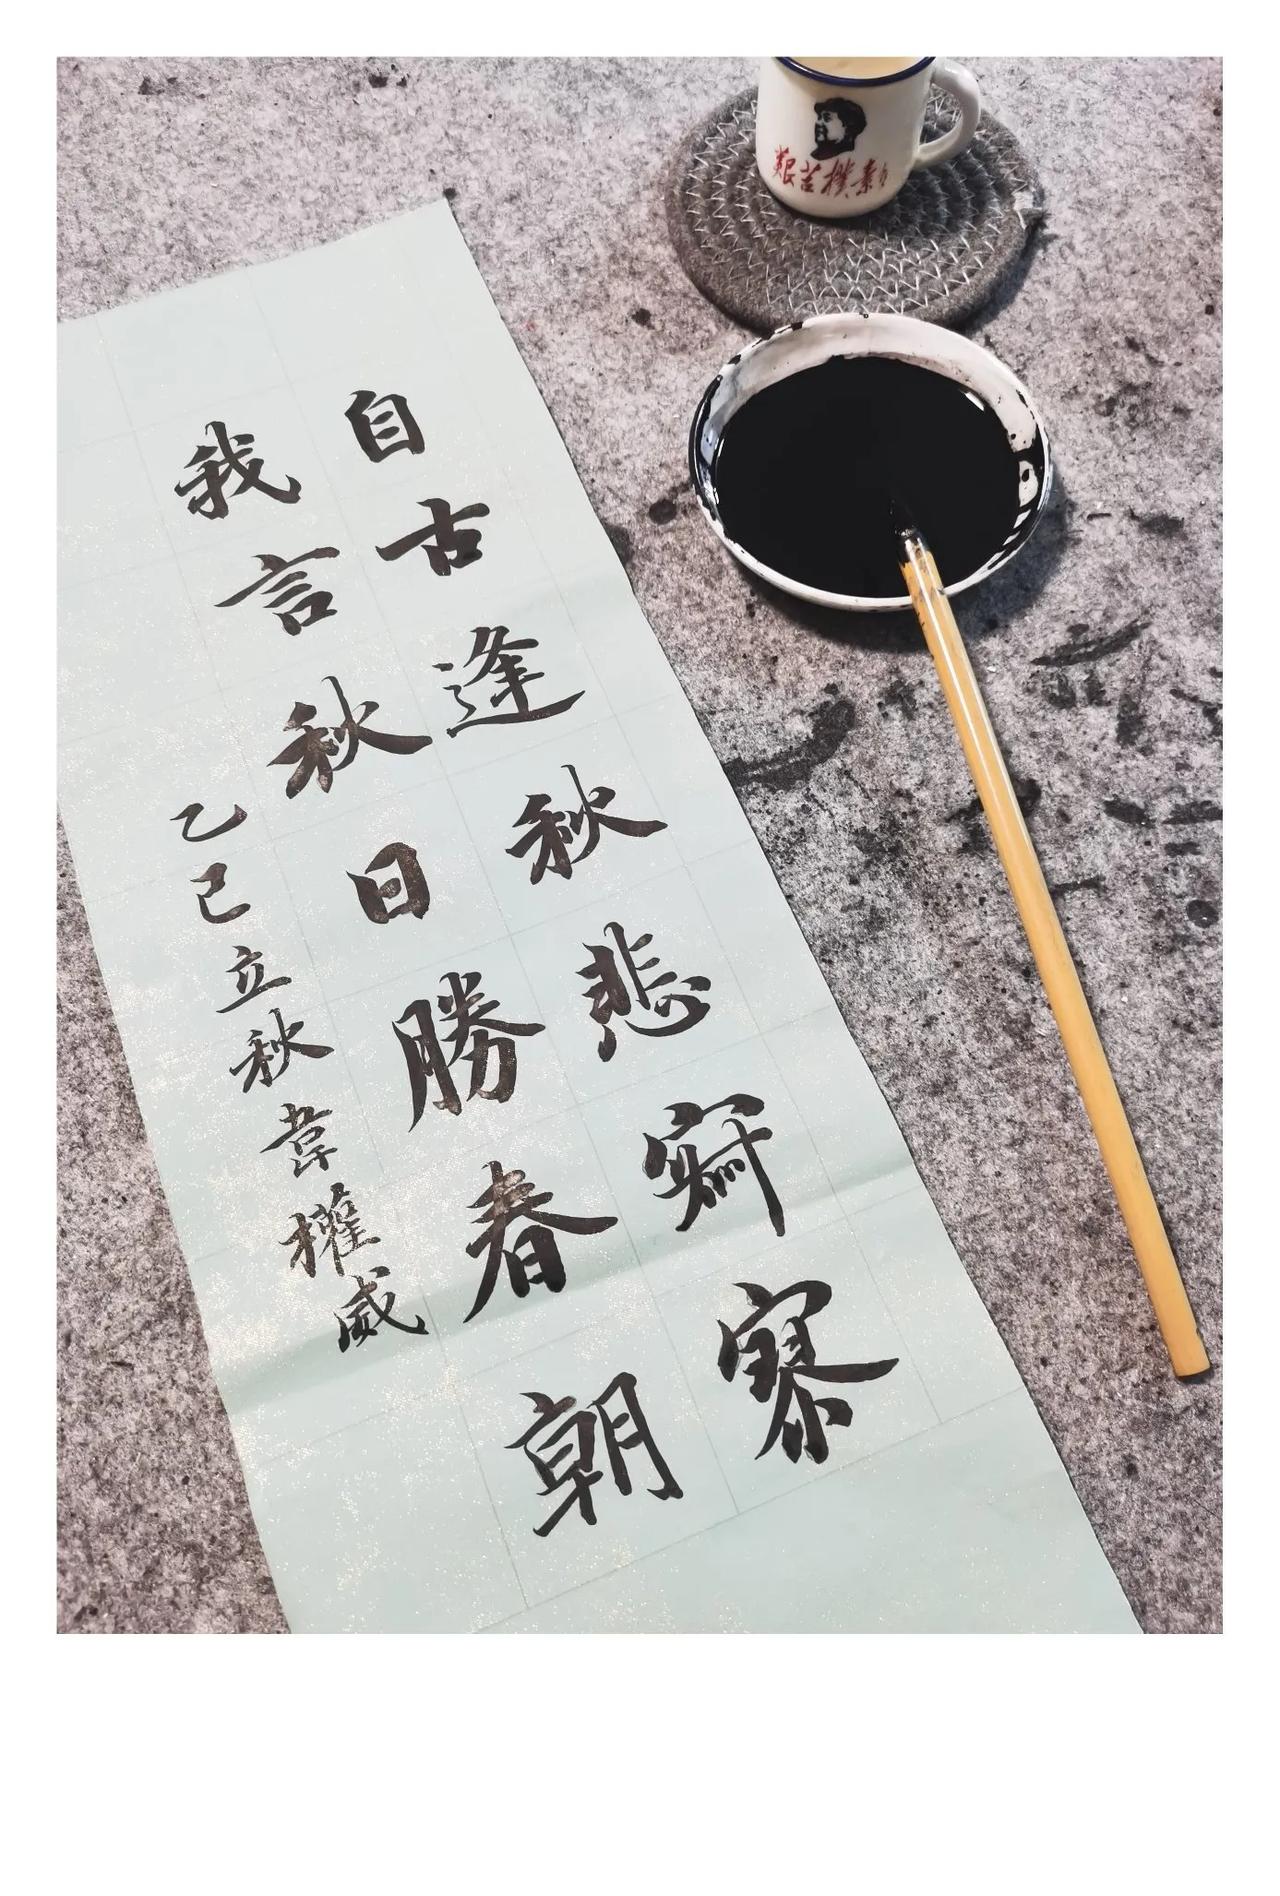 自古逢秋悲寂寥
我言秋日勝春朝
乙巳立秋韋權威
艱苦樸素